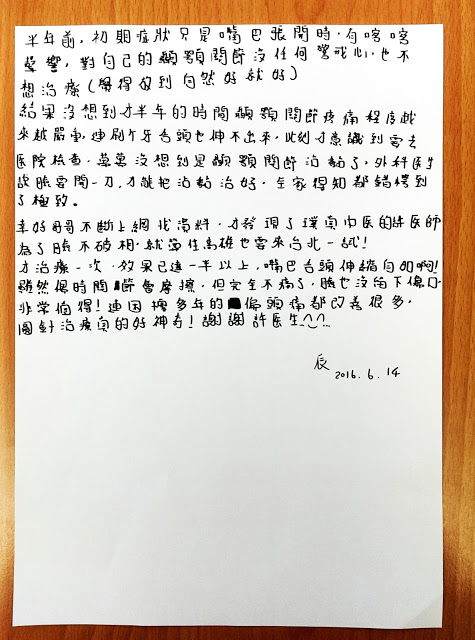 半年前，初期症狀只是嘴巴張開時，有喀喀
聲響，對自己的顳顎關節沒任何警戒心，也不
想治療（覺得放到自然好就好）
結果沒想到才半年的時間顳顎關節疼痛程度越
來越嚴重，連刷個牙舌頭也伸不出來，此刻才意識到需去
医院檢查，萬萬沒想到是顳顎關節沾黏了，外科医生
說臉需開一刀，才能把沾黏治好，全家得知都錯愕到
了極致。
幸好哥哥不斷上網找資料，才發現了璞真中医的許医師
為了臉不破相，就算住高雄也要來台北一試！
才治療一次，效果已達一半以上，嘴巴舌頭伸縮自如啊！
雖然張時關節會摩擦，但完全不痛了，臉也沒留下傷口
非常值得！連困擾多年的偏頭痛都改善很多，
圓針治療真的好神奇！謝謝許医生^_^
辰 2016.6.14